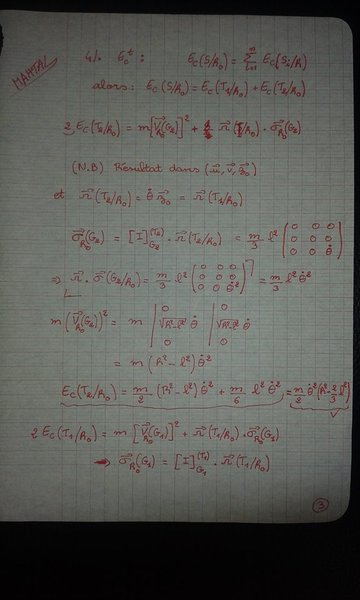 MAHTAL
4/. Ec^t : Ec(S/R₀) = Σ_{i=1}^{n} Ec(Sᵢ/R)
alors : Ec(S/R₀) = Ec(T₁/R₀) + Ec(T₂/R₀)
2 Ec(T₂/R₀) = m[V⃗_{R₀}(G₂)]² + Ω⃗(T/R₀) · σ⃗_{R₀}(G₂)
(N.B) Résultat dans (u⃗, v⃗, z⃗₀)
et Ω⃗(T₂/R₀) = θ̇ z⃗₀ = Ω⃗(T/R₀)
σ⃗_{R₀}(G₂) = [I]_{G₂}^{(T₂)} · Ω⃗(T₂/R₀) = m/3 l² (0 0 0 ; 0 0 0 ; 0 0 θ̇)
⇒ Ω⃗ · σ⃗(G₂/R₀) = m/3 l² (0 0 0 ; 0 0 0 ; 0 0 θ̇²) = m/3 l² θ̇²
m(V⃗_{R₀}(G₂))² = m | 0 ; √R²-l² θ̇ ; 0 | 0 ; √R²-l² θ̇ ; 0
= m (R² - l²) θ̇²
Ec(T₂/R₀) = m/2 (R² - l²) θ̇² + m/6 l² θ̇² = m/2 θ̇² (R² - 2/3 l²)
2 Ec(T₁/R₀) = m [V⃗_{R₀}(G₁)]² + Ω⃗(T₁/R₀) · σ⃗_{R₀}(G₁)
→ σ⃗_{R₀}(G₁) = [I]_{G₁}^{(T₁)} · Ω⃗(T₁/R₀)
3